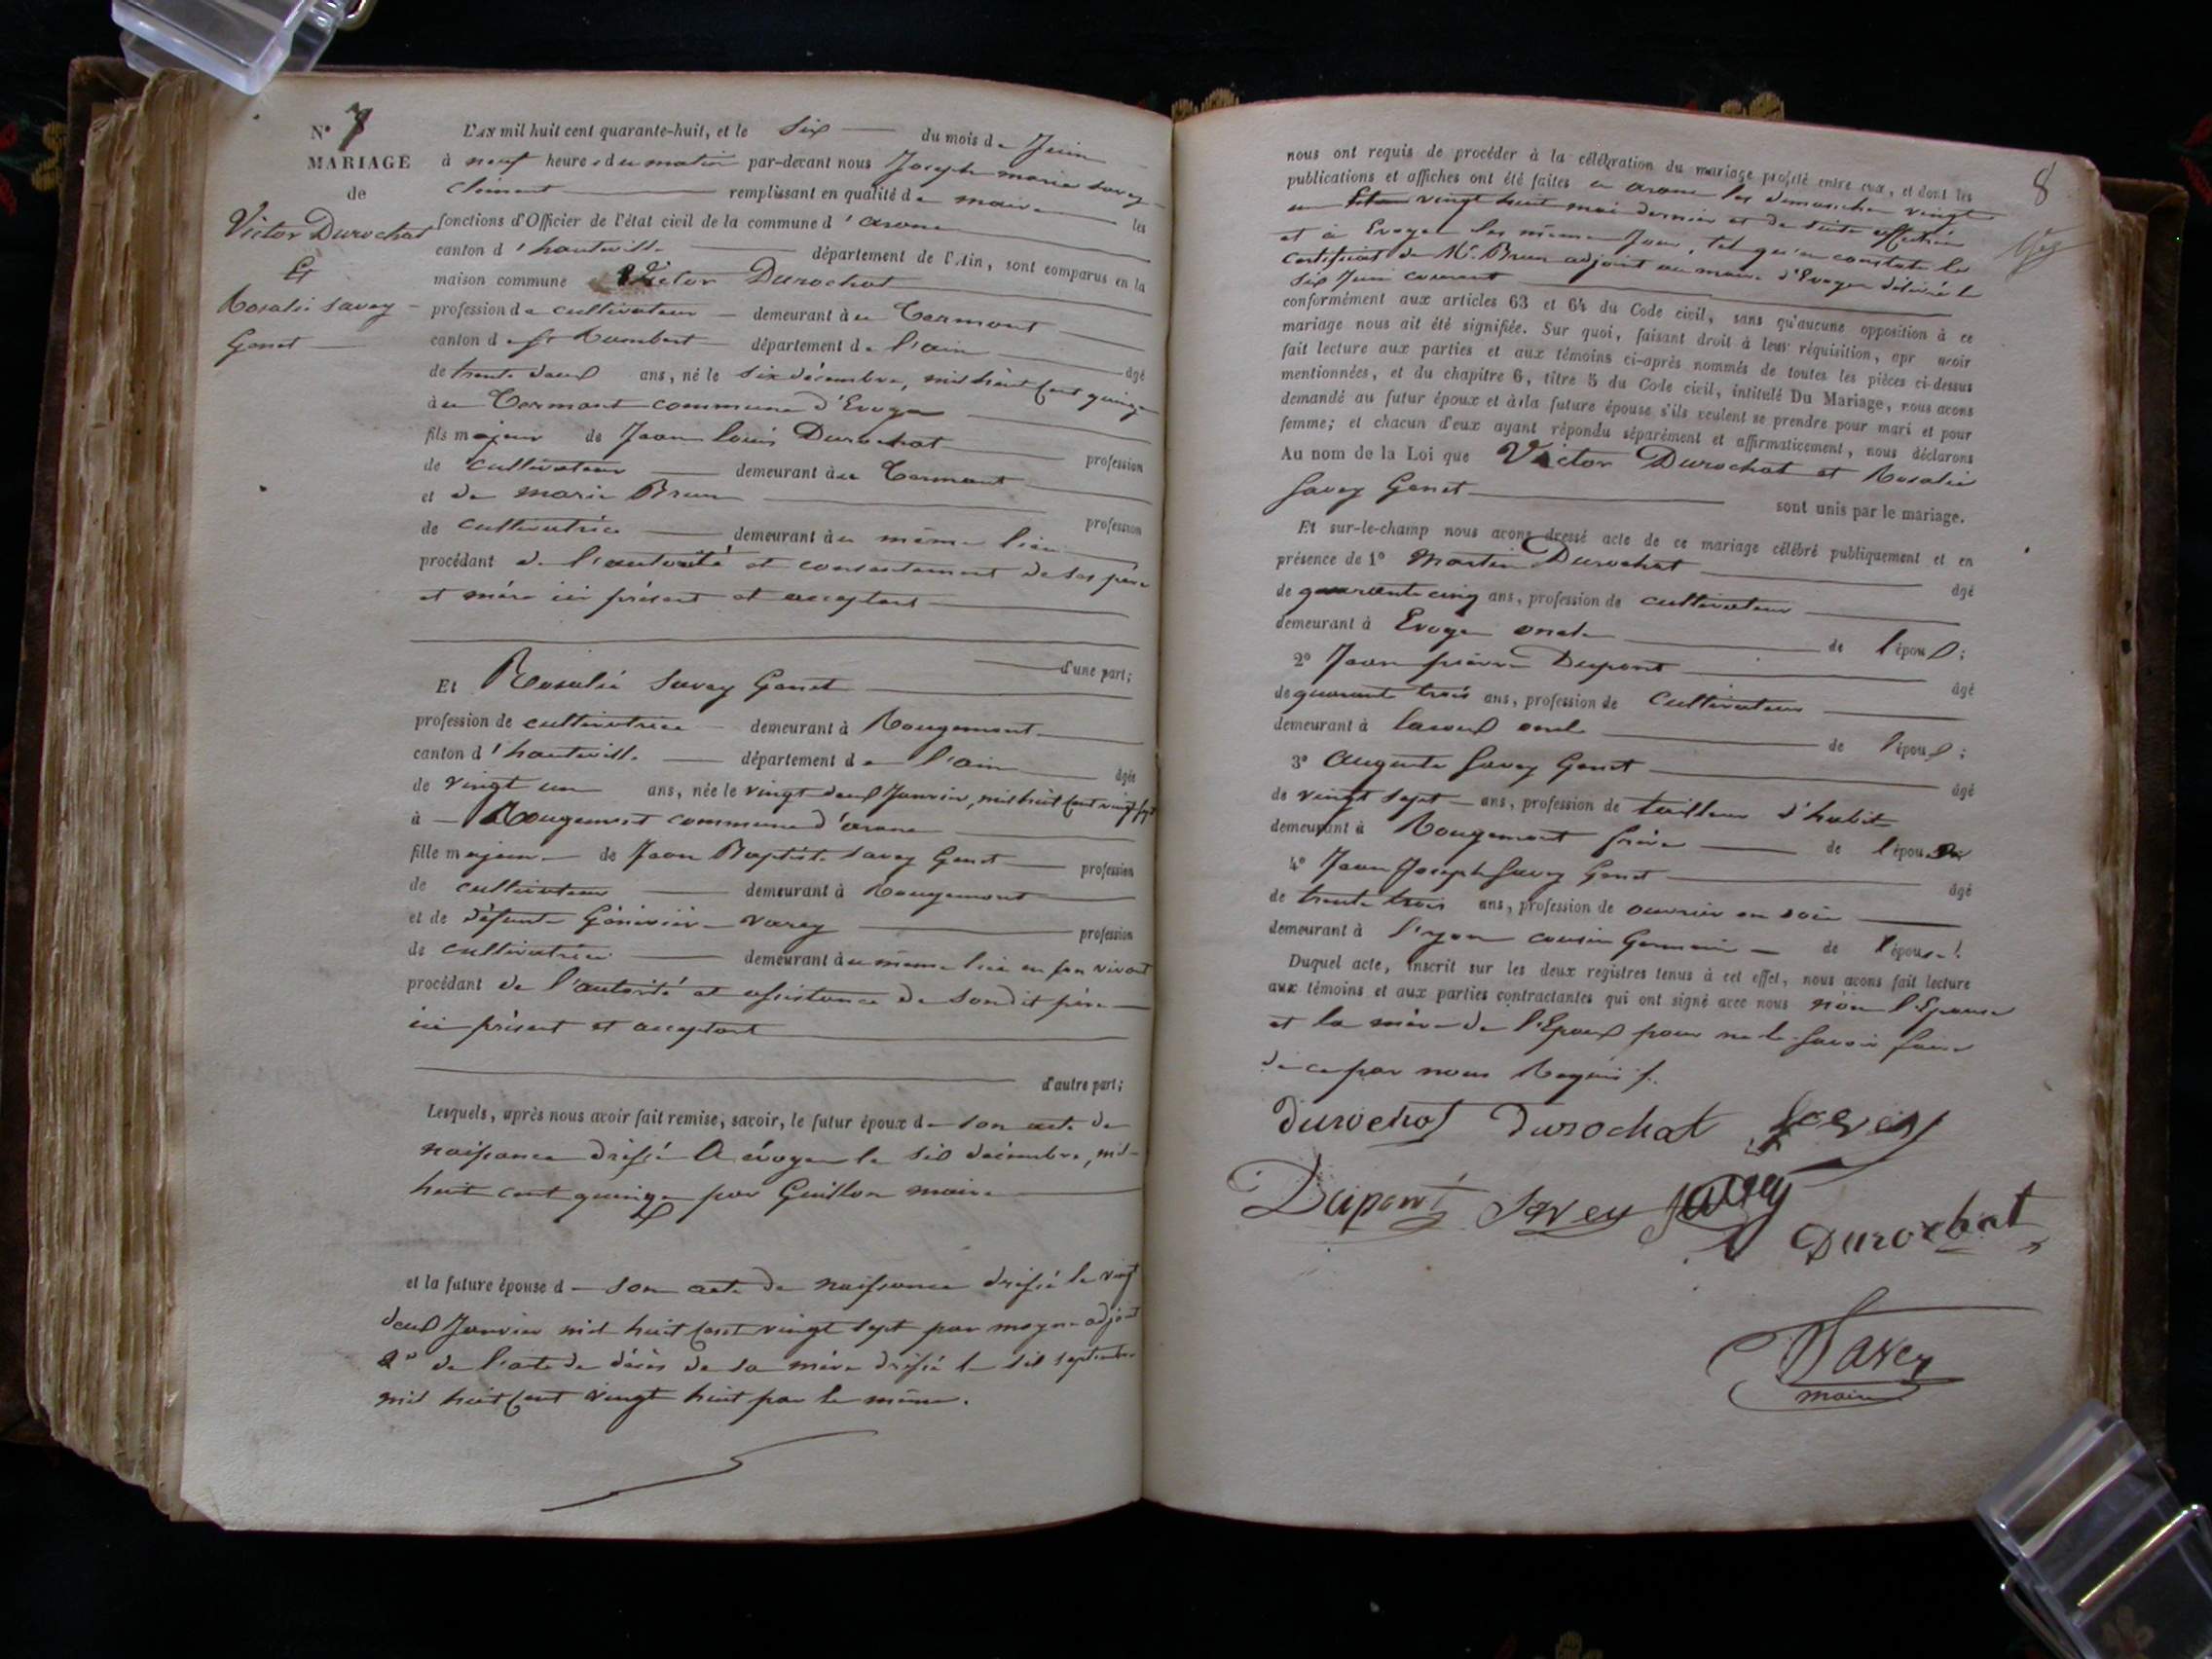 N° 7
MARIAGE
de
Victor Durochat
Et
Rosalie Savey
Genet
L'AN mil huit cent quarante-huit, et le Six du mois de Juin
à neuf heures du matin par-devant nous Joseph marie Savey
clément remplissant en qualité de maire les
fonctions d'Officier de l'état civil de la commune d'arane
canton d'hauteville département de l'Ain, sont comparus en la
maison commune Victor Durochat
profession de cultivateur demeurant au Termant
canton de St Rambert département de l'ain âgé
de trente deux ans, né le six décembre, mil huit cent quinze
au Termant commune d'Evoge
fils majeur de Jean Louis Durochat profession
de cultivateur demeurant au Termant
et de marie Brun profession
de cultivatrice demeurant au même lieu
procédant de l'autorité et consentement de ses père
et mère ici présent et acceptant
d'une part;
Et Rosalie Savey Genet
profession de cultivatrice demeurant à Rougemont
canton d'hauteville département de l'ain âgée
de vingt un ans, née le vingt deux Janvier, mil huit cent vingt sept
à Rougemont commune d'arane
fille majeure de Jean Baptiste Savey Genet profession
de cultivateur demeurant à Rougemont
et de défunte Géniviève Varey profession
de cultivatrice demeurant au même lieu en son vivant
procédant de l'autorité et assistance de sondit père
ici présent et acceptant
d'autre part;
Lesquels, après nous avoir fait remise, savoir, le futur époux de son acte de
naissance dressé A évoge le six décembre, mil
huit cent quinze par Guillon maire
et la future épouse de son acte de naissance dressé le vingt
deux Janvier mil huit cent vingt sept par moyne adjoint
2° de l'acte de décès de sa mère dressé le six septembre
mil huit cent vingt huit par le même.
8
nous ont requis de procéder à la célébration du mariage projeté entre eux, et dont les
publications et affiches ont été faites a arane les dimanches vingt
un vingt huit mai dernier et de suite affichée
et à Evoges les même Jour, tel qu'en constate le
certificat de Mr. Brun adjoint au maire d'Evoges délivré le
six Juin courant
conformément aux articles 63 et 64 du Code civil, sans qu'aucune opposition à ce
mariage nous ait été signifiée. Sur quoi, faisant droit à leur réquisition, apr avoir
fait lecture aux parties et aux témoins ci-après nommés de toutes les pièces ci-dessus
mentionnées, et du chapitre 6, titre 5 du Code civil, intitulé Du Mariage, nous avons
demandé au futur époux et à la future épouse s'ils veulent se prendre pour mari et pour
femme; et chacun d'eux ayant répondu séparément et affirmativement, nous déclarons
Au nom de la Loi que Victor Durochat et Rosalie
Savey Genet sont unis par le mariage.
Et sur-le-champ nous avons dressé acte de ce mariage célébré publiquement et en
présence de 1° Martin Durochat âgé
de quarante cinq ans, profession de cultivateur
demeurant à Evoge oncle de l'époux;
2° Jean pierre Dupont âgé
de quarante trois ans, profession de Cultivateur
demeurant à oncle de l'époux;
3° Auguste Savey Genet âgé
de vingt sept ans, profession de tailleur d'habit
demeurant à Rougemont frère de l'épouse
4° Jean Joseph Savey Genet âgé
de trente trois ans, profession de ouvrier en soie
demeurant à Lyon cousin Germain de l'épouse.
Duquel acte, inscrit sur les deux registres tenus à cet effet, nous avons fait lecture
aux témoins et aux parties contractantes qui ont signé avec nous non l'Epouse
et la mère de l'Epoux pour ne le savoir faire
de ce par nous Requis
durochat Durochat Savey
Dupont Savey Savey Durochat
Savey
maire